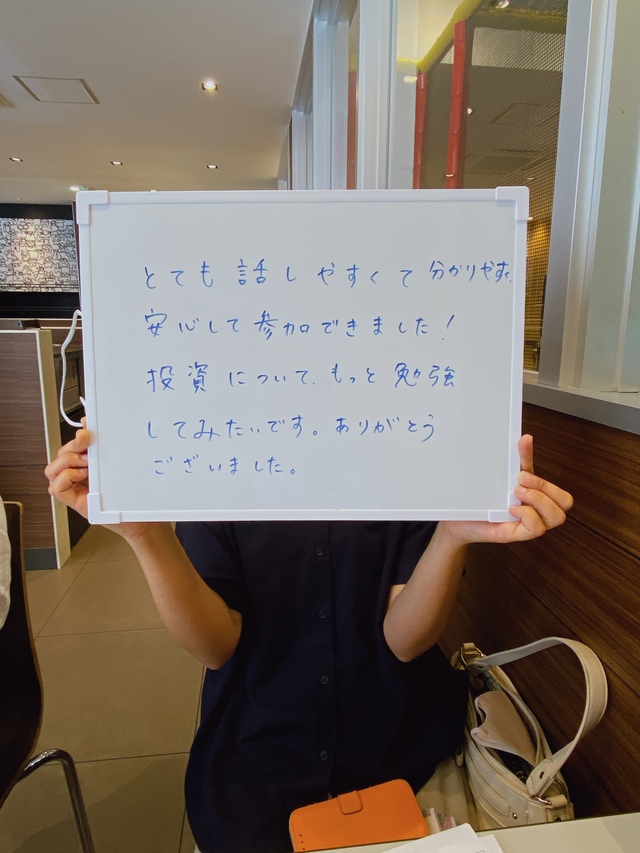 とても話しやすくて分かりやすく、
安心して参加できました！
投資について、もっと勉強
してみたいです。ありがとう
ございました。